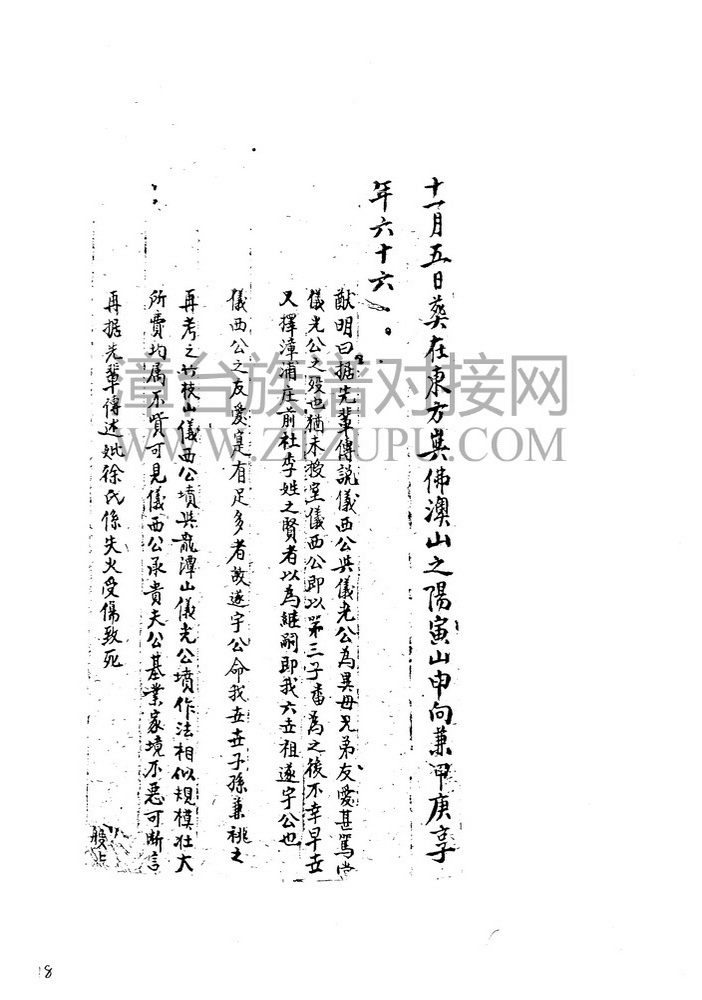 十一月五日葬在東方與佛澳山之陽寅山申向兼甲庚享
年六十六。
猷明曰据先輩傳説儀西公與儀光公為異母兄弟友愛甚篤當
儀光公之殁也猶未授室儀西公即以第三子番為之後不幸早世
又擇漳浦庄前社李姓之賢者以為継嗣即我六世祖遂宇公也
儀西公之友愛寔有足多者故遂宇公命我世世子孫兼祧之
再考之竹枝山儀西公墳與龍潭山儀光公墳作法相似規模壮大
所費均属不貲可見儀西公承貴夫公基業家境不惡可断言
再据先輩傳述妣徐氏係失火受傷致死
章台族谱对接网
WWW.ZTZUPU.COM
18